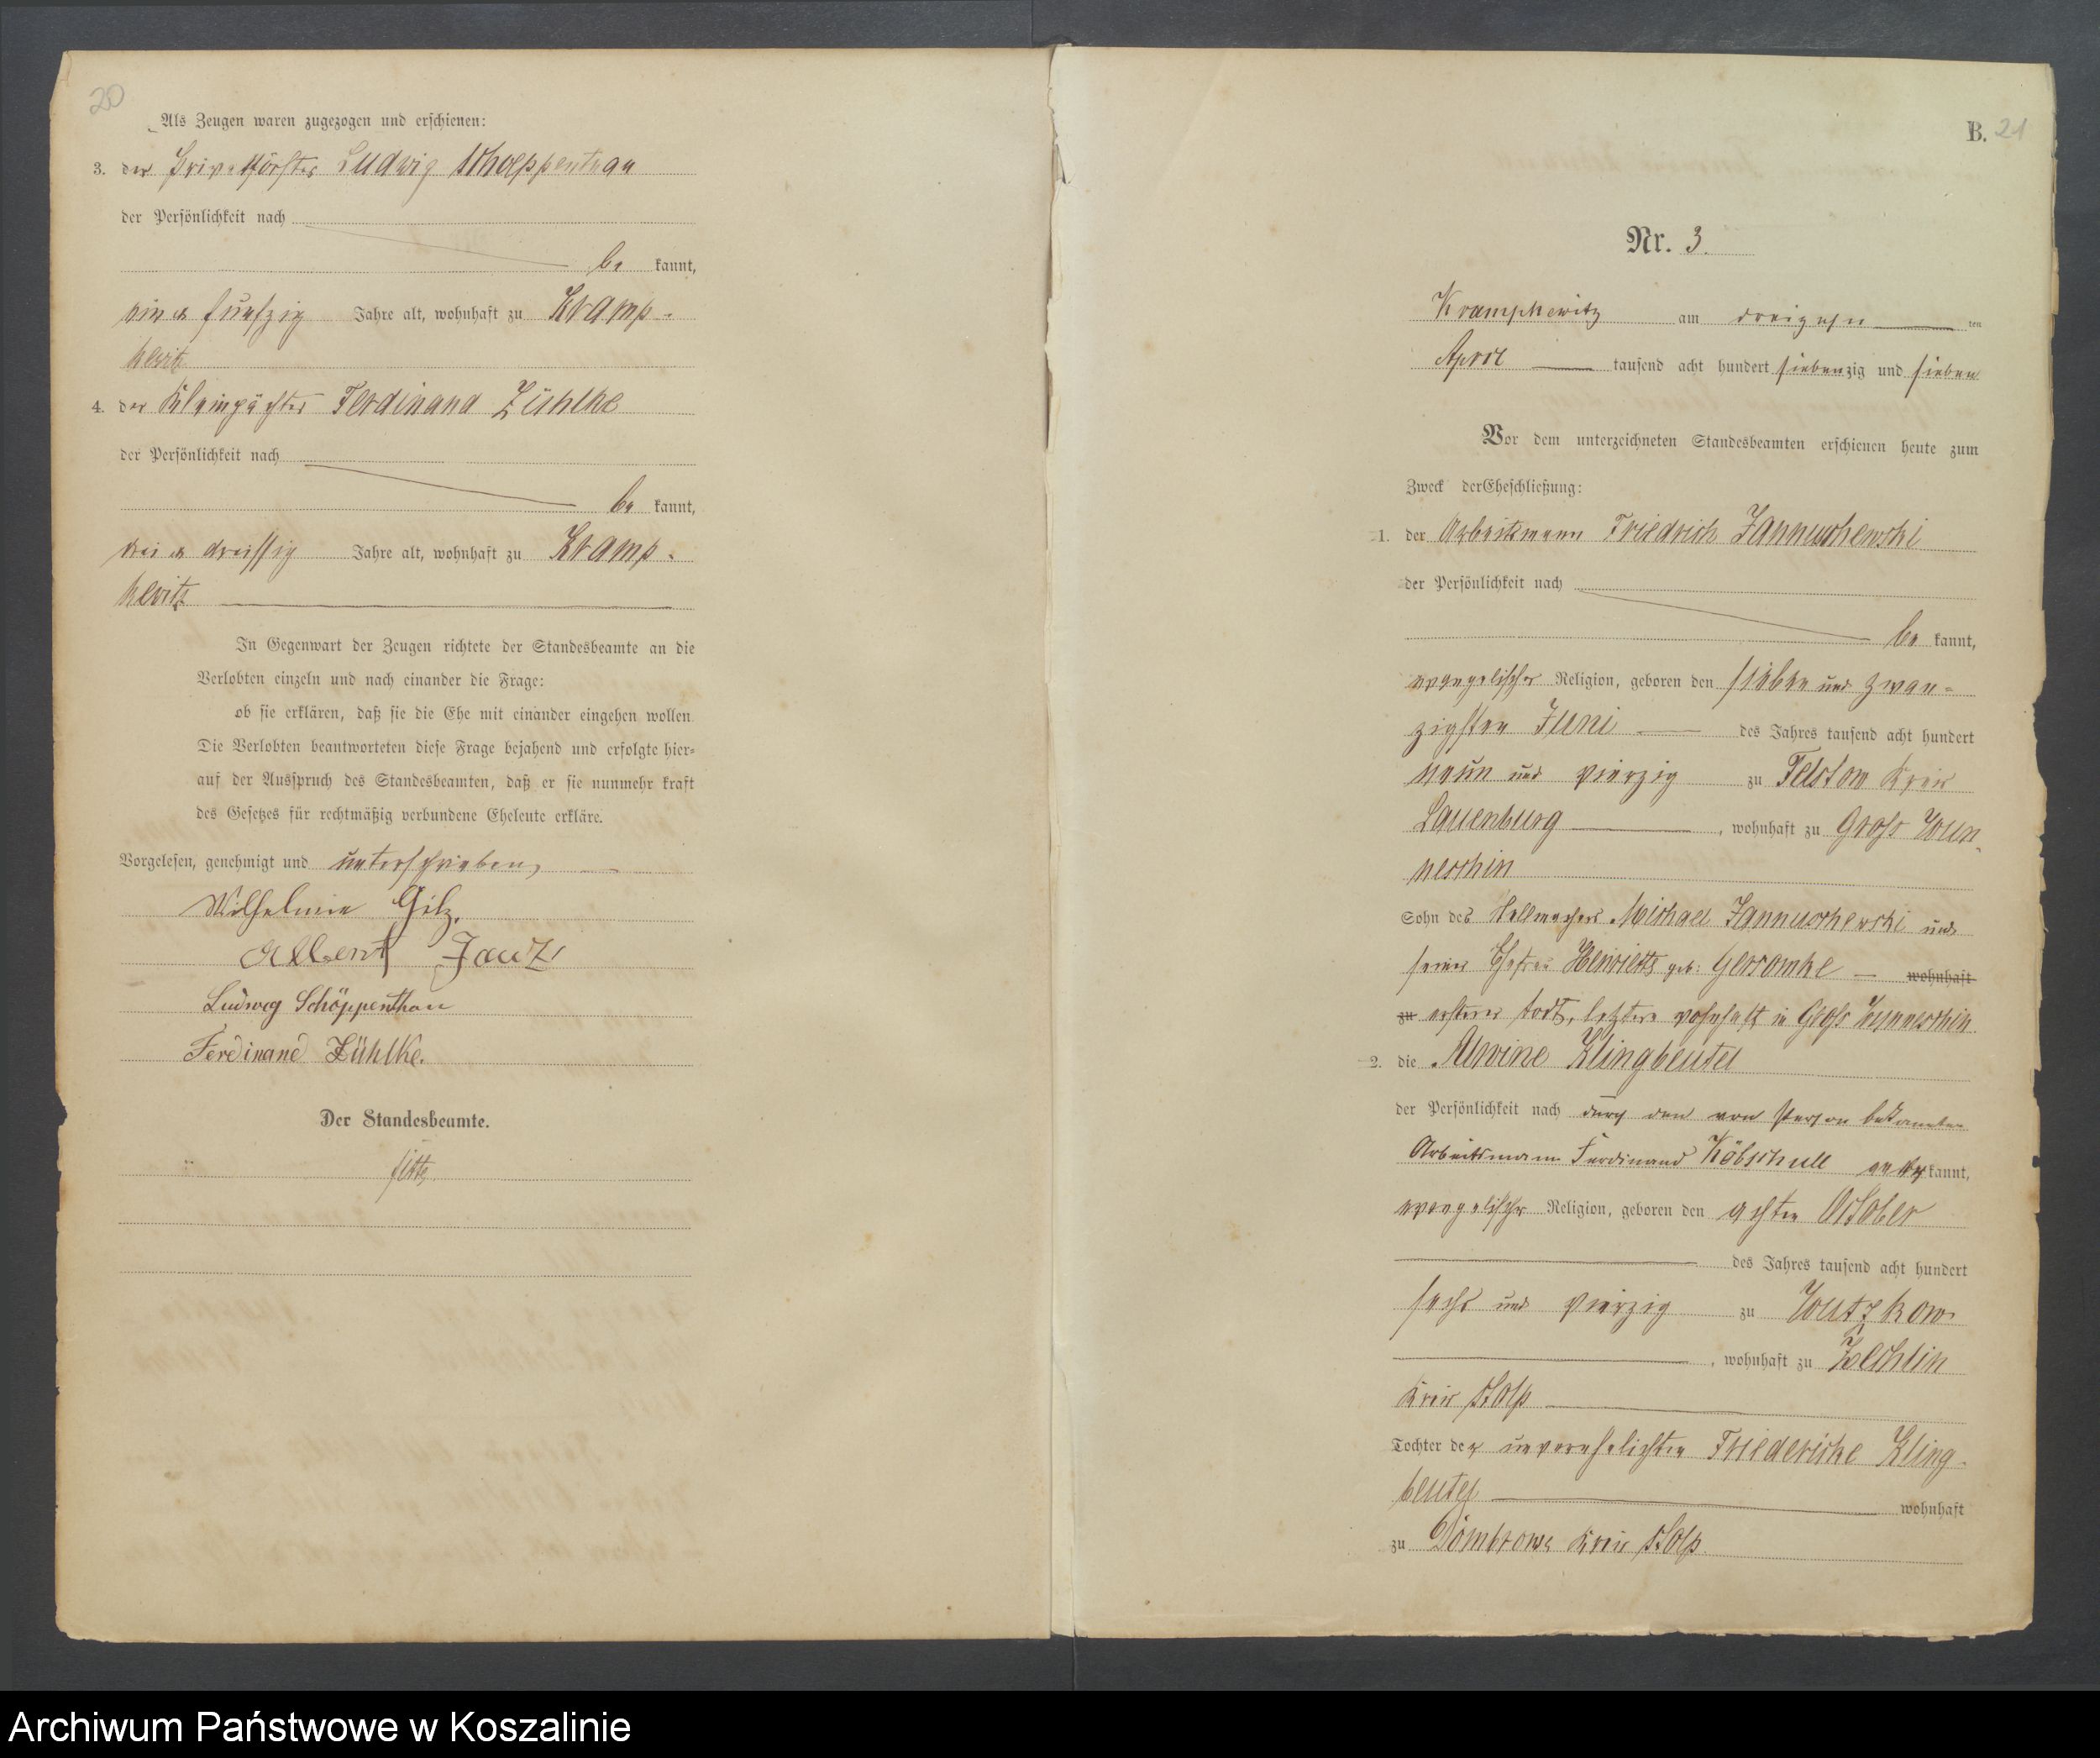 20
Als Zeugen waren zugezogen und erschienen:
3. der Privatförster Ludwig Schoeppenthau
der Persönlichkeit nach
be kannt,
ein & funfzig Jahre alt, wohnhaft zu Kramp-
kewitz
4. der Kleinpächter Ferdinand Zühlke
der Persönlichkeit nach
be kannt,
drei & dreissig Jahre alt, wohnhaft zu Kramp-
kewitz
In Gegenwart der Zeugen richtete der Standesbeamte an die
Verlobten einzeln und nach einander die Frage:
ob sie erklären, daß sie die Ehe mit einander eingehen wollen
Die Verlobten beantworteten diese Frage bejahend und erfolgte hier-
auf der Ausspruch des Standesbeamten, daß er sie nunmehr kraft
des Gesetzes für rechtmäßig verbundene Eheleute erkläre.
Vorgelesen, genehmigt und unterschrieben,
Wilhelmine Gilz.
Albert
Ludwig Schöppenthau
Ferdinand Zühlke.
Der Standesbeamte.
B. 21
Nr. 3.
Krampkewitz am dreizehn ten
April tausend acht hundert siebenzig und sieben
Vor dem unterzeichneten Standesbeamten erschienen heute zum
Zweck der Eheschließung:
1. der Arbeitsmann Friedrich Jannuschewski
der Persönlichkeit nach
be kannt,
evangelischer Religion, geboren den sieben und zwan-
zigsten Juni des Jahres tausend acht hundert
neun und vierzig zu Felstow Kreis
Lauenburg, wohnhaft zu Gross Wun-
neschin
Sohn des Michael Jannuschewski und
seiner Ehefrau Henriette geb: Gerromke wohnhaft
zu ersterer todt, letztere wohnhaft in Gross Wunneschin.
2. die Alwine Klingbeutel
der Persönlichkeit nach durch den von Person bekannten
Arbeitsmann Ferdinand Köbschull aner kannt,
evangelischer Religion, geboren den achten October
des Jahres tausend acht hundert
sechs und vierzig zu Wutzkow
, wohnhaft zu Zechlin
Kreis Stolp
Tochter der unverehelichten Friedericke Kling-
beutel wohnhaft
zu Dombrowe Kreis Stolp.
Archiwum Państwowe w Koszalinie